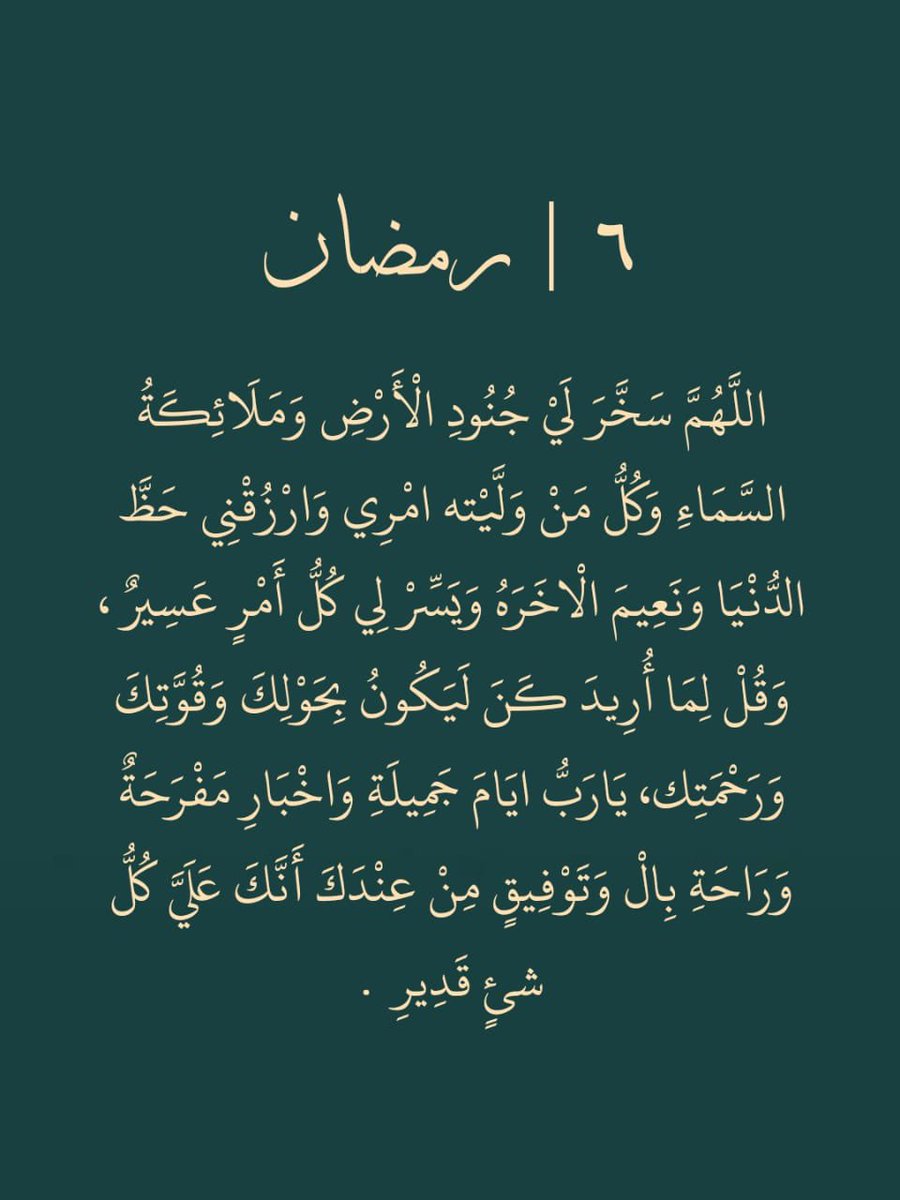 ٦ | رمضان
اللَّهُمَّ سَخَّرَ لَيْ جُنُودِ الْأَرْضِ وَمَلَائِكَةُ
السَّمَاءِ وَكُلُّ مَنْ وَلَّيْته امْرِي وَارْزُقْنِي حَظَّ
الدُّنْيَا وَنَعِيمَ الْاخَرَهُ وَيَسِّرْ لِي كُلُّ أَمْرٍ عَسِيرٌ ،
وَقُلْ لِمَا أُرِيدَ كَنَ لَيَكُونُ بِحَوْلِكَ وَقُوَّتِكَ
وَرَحْمَتِك، يَارَبُّ ايَامَ جَمِيلَةِ وَاخْبَارِ مَفْرَحَةٌ
وَرَاحَةِ بِالْ وَتَوْفِيقٍ مِنْ عِنْدَكَ أَنَّكَ عَلَيَّ كُلُّ
شئٍ قَدِيرِ .